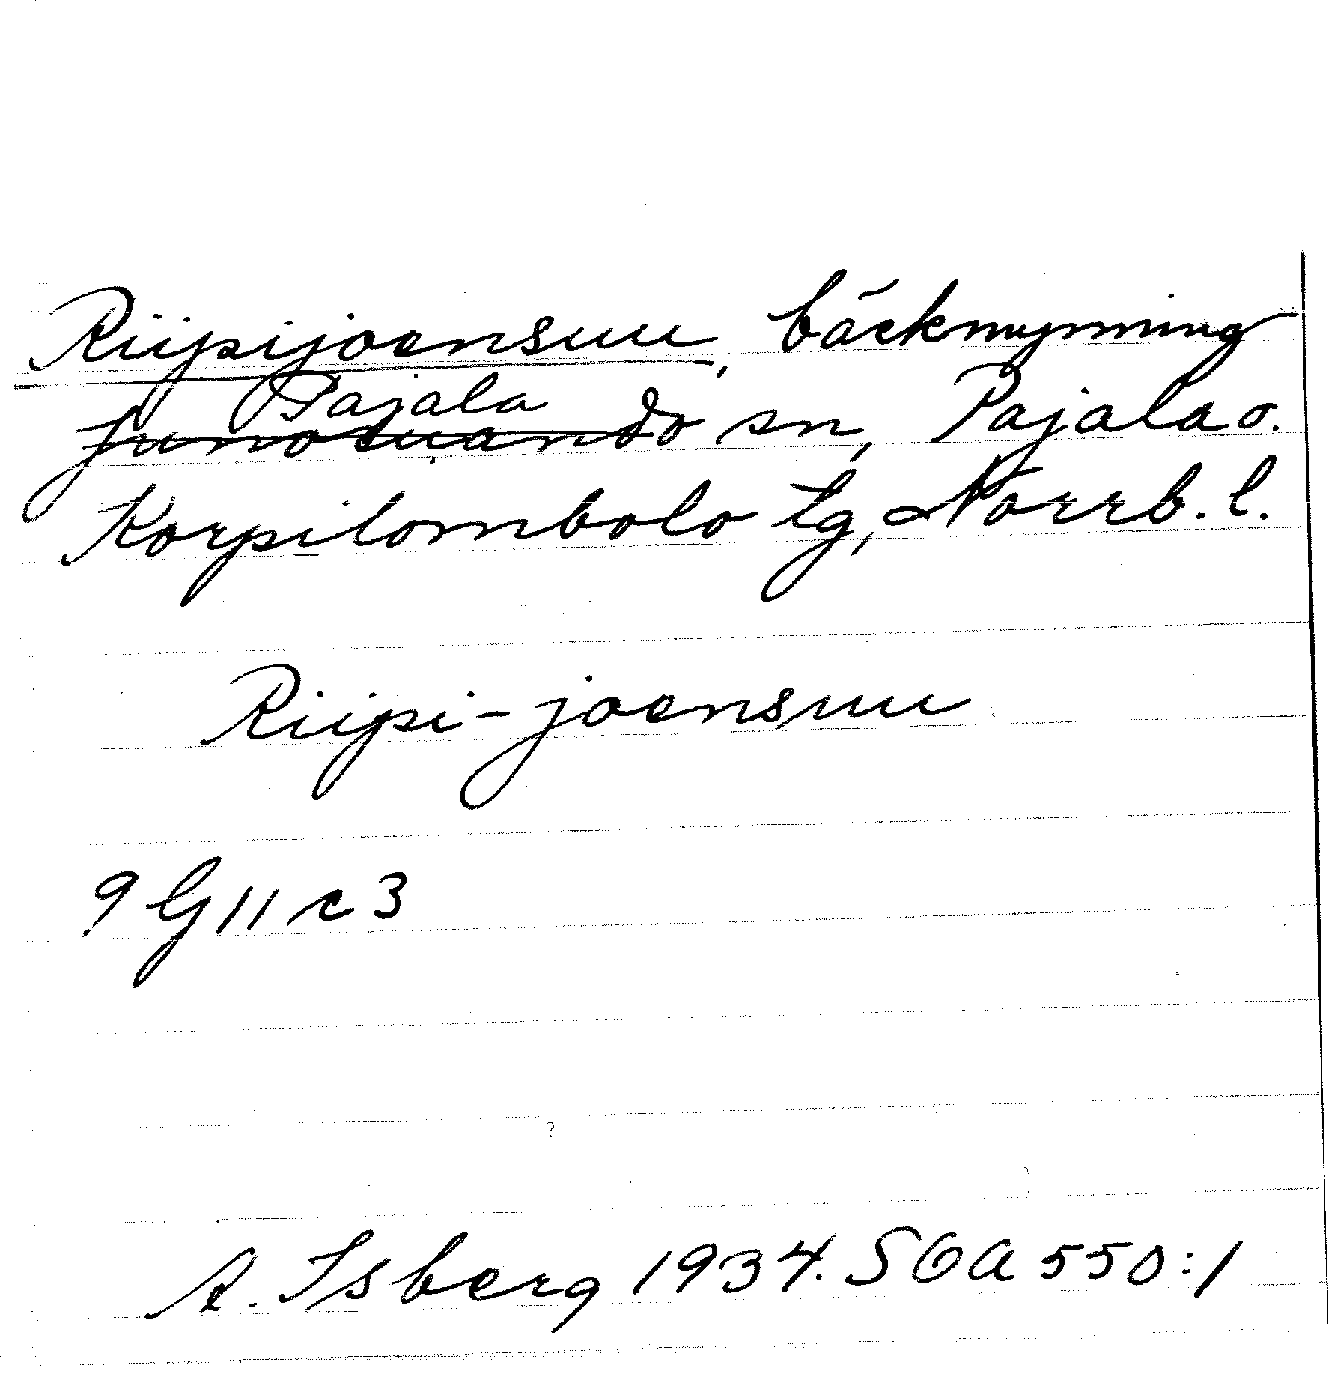 Riipijoensuu, bäckmynning
Pajala
Junosuando sn, Pajala o.
Korpilombolo tg, Norrb. l.
Riipi-joensuu
9 G 11 c 3
A. Isberg 1934. SOA 550:1